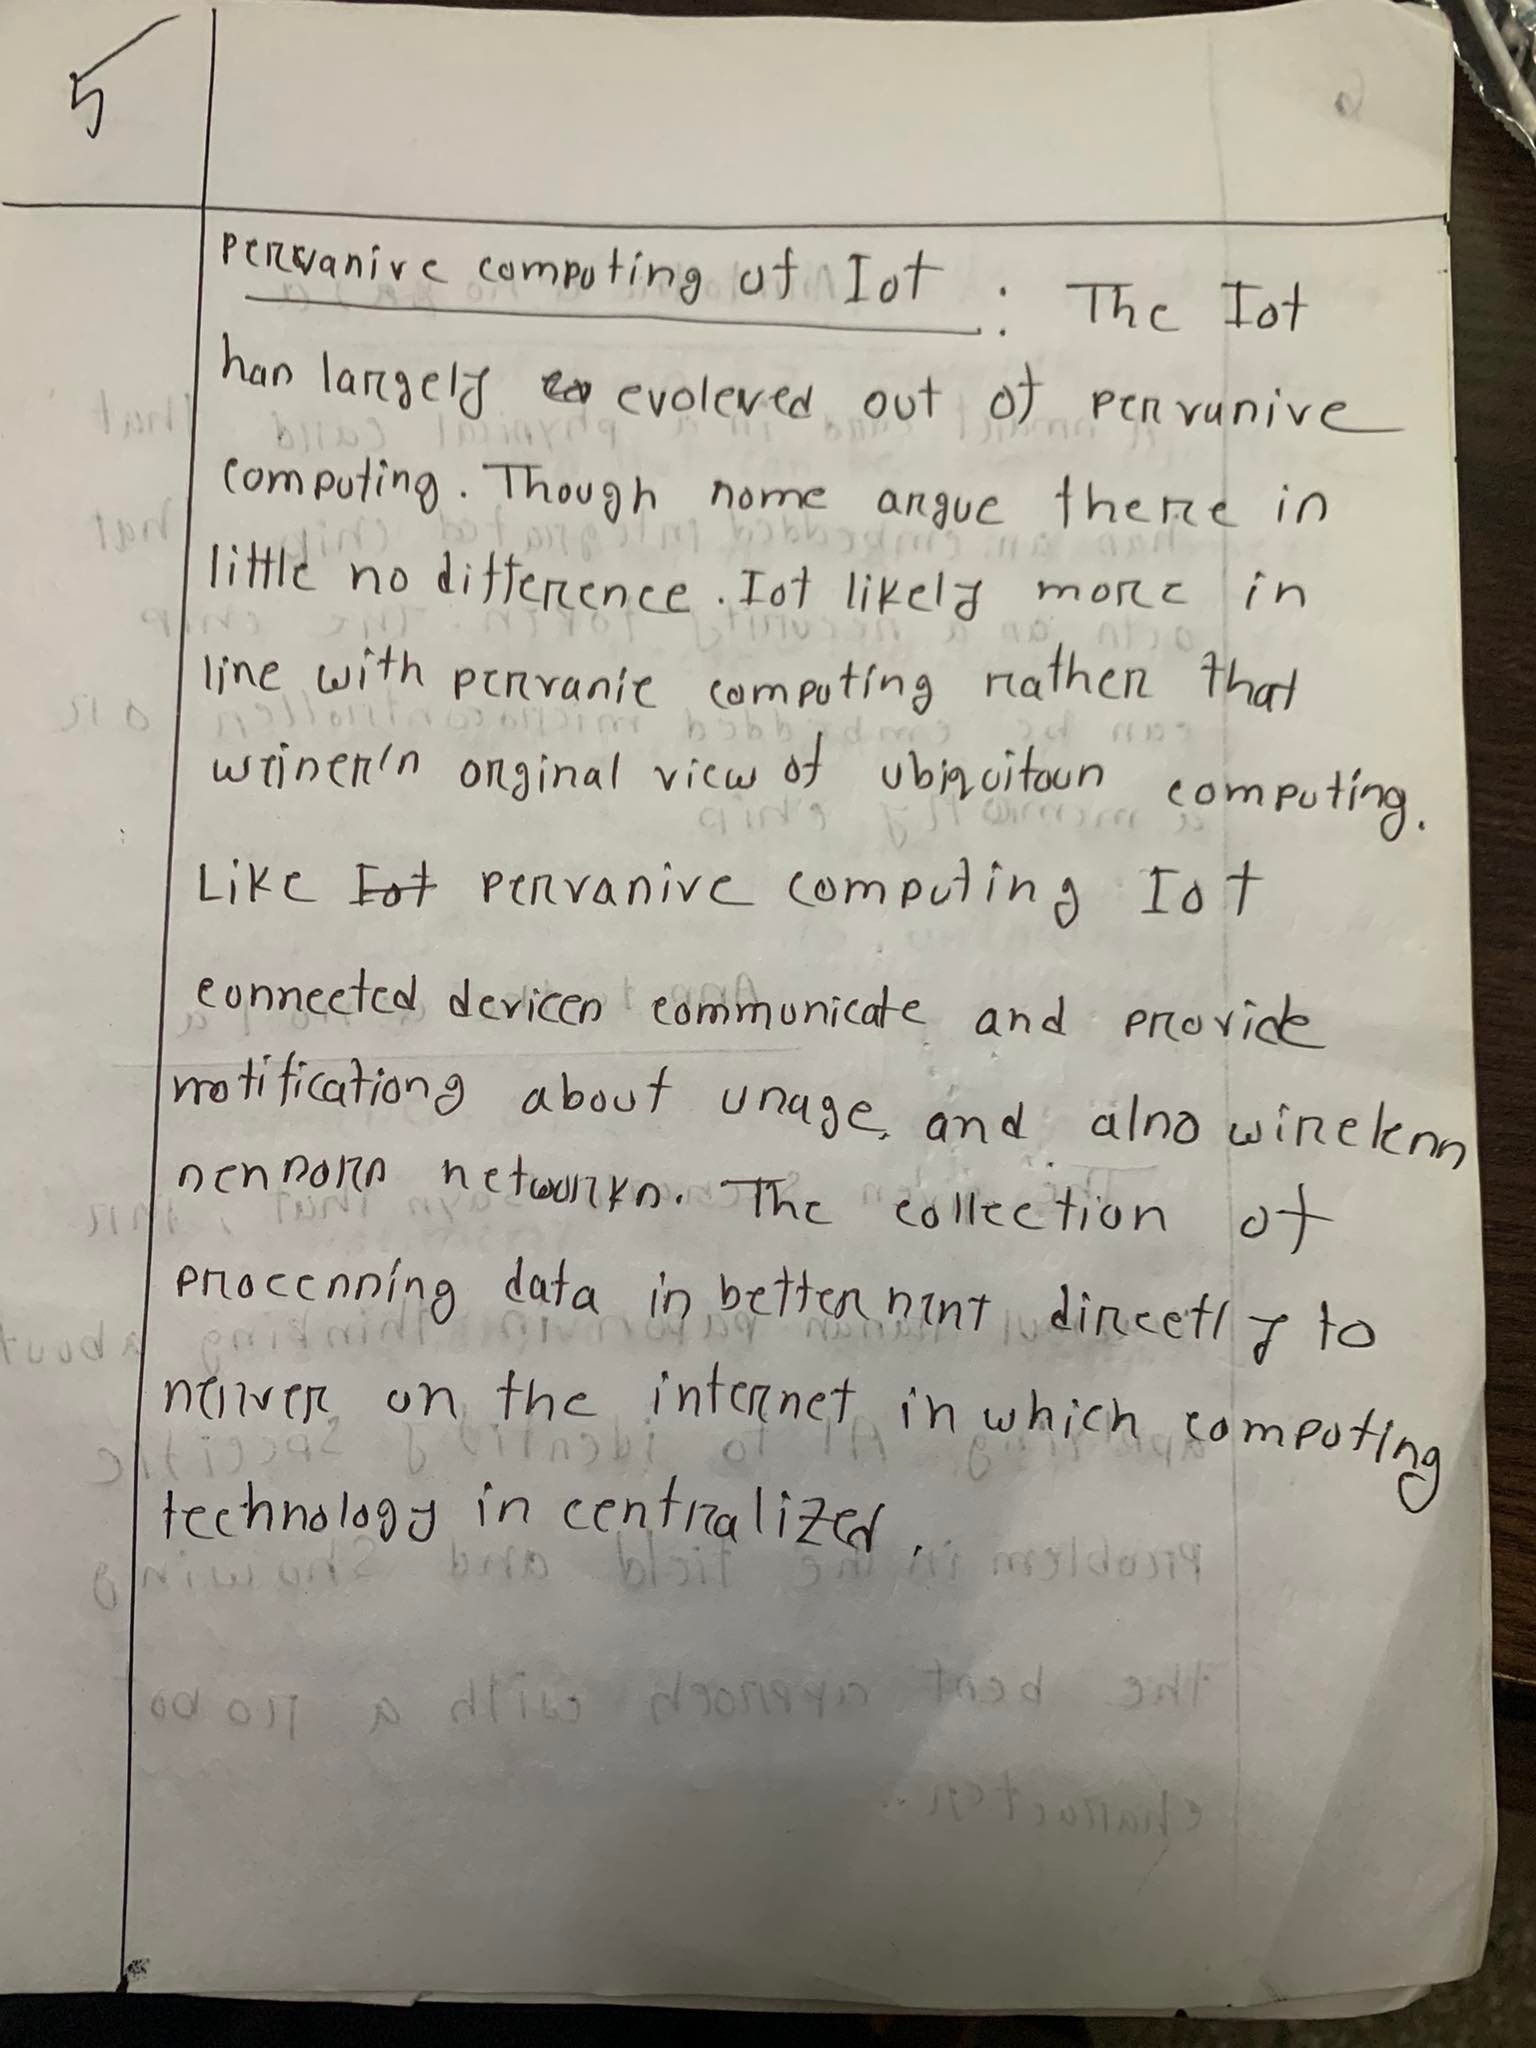 5
Pervasive computing of Iot : The Iot
has largely evoleved out of pervunive
computing. Though some argue there is
little no difference. Iot likely more in
line with pervasie computing rather that
weiser's orginal view of ubiquitous computing.
Like Iot pervasive computing Iot
connected devices communicate and provide
notificationg about usage, and also wireless
sensors networks. The collection of
processing data is better sent directly to
server on the internet in which computing
technology is centralized.